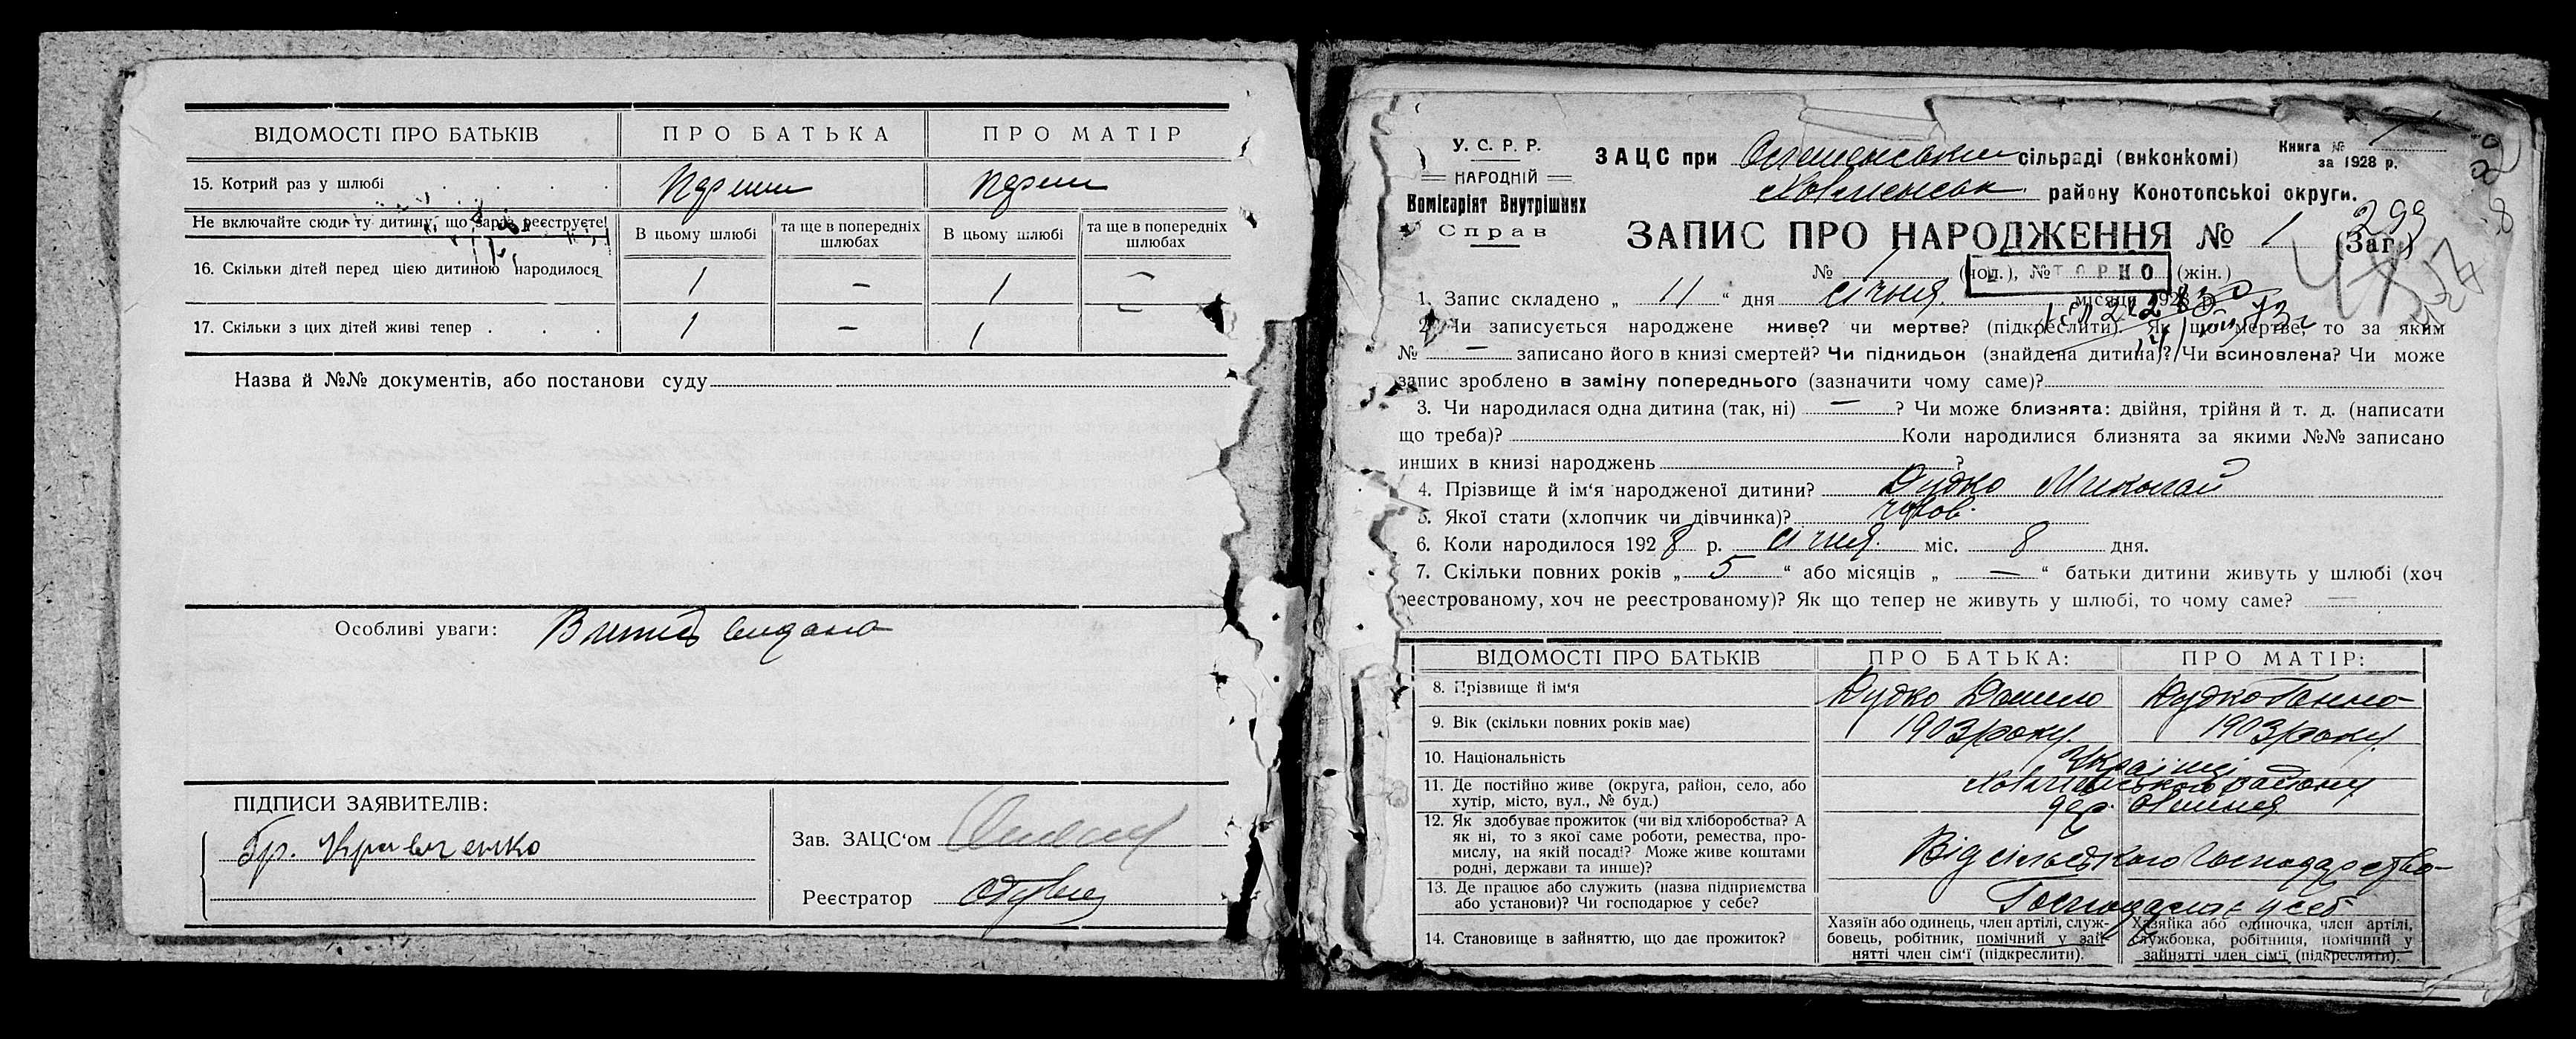 ВІДОМОСТІ ПРО БАТЬКІВ ПРО БАТЬКА ПРО МАТІР
15. Котрий раз у шлюбі
Не включайте сюди ту дитину, що зараз реєструєте
В цьому шлюбі та ще в попередніх шлюбах В цьому шлюбі та ще в попередніх шлюбах
16. Скільки дітей перед цією дитиною народилося 1 — 1 —
17. Скільки з цих дітей живі тепер 1 — 1 —
Назва й №№ документів, або постанови суду
Особливі уваги: видано
ПІДПИСИ ЗАЯВИТЕЛІВ:
Гр. Кравченко
Зав. ЗАЦС'ом
Реєстратор
У. С. Р. Р.
НАРОДНІЙ
Комісаріят Внутрішних
Справ
ЗАЦС при сільраді (виконкомі)
Книга №
за 1928 р.
району Конотопської округи.
ЗАПИС ПРО НАРОДЖЕННЯ № 1 (Заг.)
299
№ 1 (чол.), № (жін.)
1. Запис складено „ 11 “ дня січня місяця 1928 р.
2. Чи записується народжене живе? чи мертве? (підкреслити). Як що мертве, то за яким
№ — записано його в книзі смертей? Чи підкидьок (знайдена дитина)? Чи всиновлена? Чи може
запис зроблено в заміну попереднього (зазначити чому саме)?
3. Чи народилася одна дитина (так, ні) — ? Чи може близнята: двійня, трійня й т. д. (написати
що треба)? Коли народилися близнята за якими №№ записано
инших в книзі народжень ?
4. Прізвище й ім'я народженої дитини? Дудко Миколай
5. Якої стати (хлопчик чи дівчинка)? чолов.
6. Коли народилося 1928 р. січня міс. 8 дня.
7. Скільки повних років „ 5 “ або місяців „ — “ батьки дитини живуть у шлюбі (хоч
реєстрованому, хоч не реєстрованому)? Як що тепер не живуть у шлюбі, то чому саме? —
ВІДОМОСТІ ПРО БАТЬКІВ ПРО БАТЬКА: ПРО МАТІР:
8. Прізвище й ім'я Дудко Данило Дудко Ганна
9. Вік (скільки повних років має) 1903 року. 1903 року.
10. Національність Українці
11. Де постійно живе (округа, район, село, або
хутір, місто, вул., № буд.) району
12. Як здобуває прожиток (чи від хліборобства? А
як ні, то з якої саме роботи, ремества, про-
мислу, на якій посаді? Може живе коштами
родні, держави та инше)? Від сільського господарства
13. Де працює або служить (назва підприємства
або установи)? Чи господарює у себе? Господарює у себе
14. Становище в зайняттю, що дає прожиток?
Хазяїн або одинець, член артілі, служ-
бовець, робітник, помічний у зай-
нятті член сім'ї (підкреслити).
Хазяйка або одиночка, член артілі,
службовка, робітниця, помічний у
зайнятті член сім'ї (підкреслити).